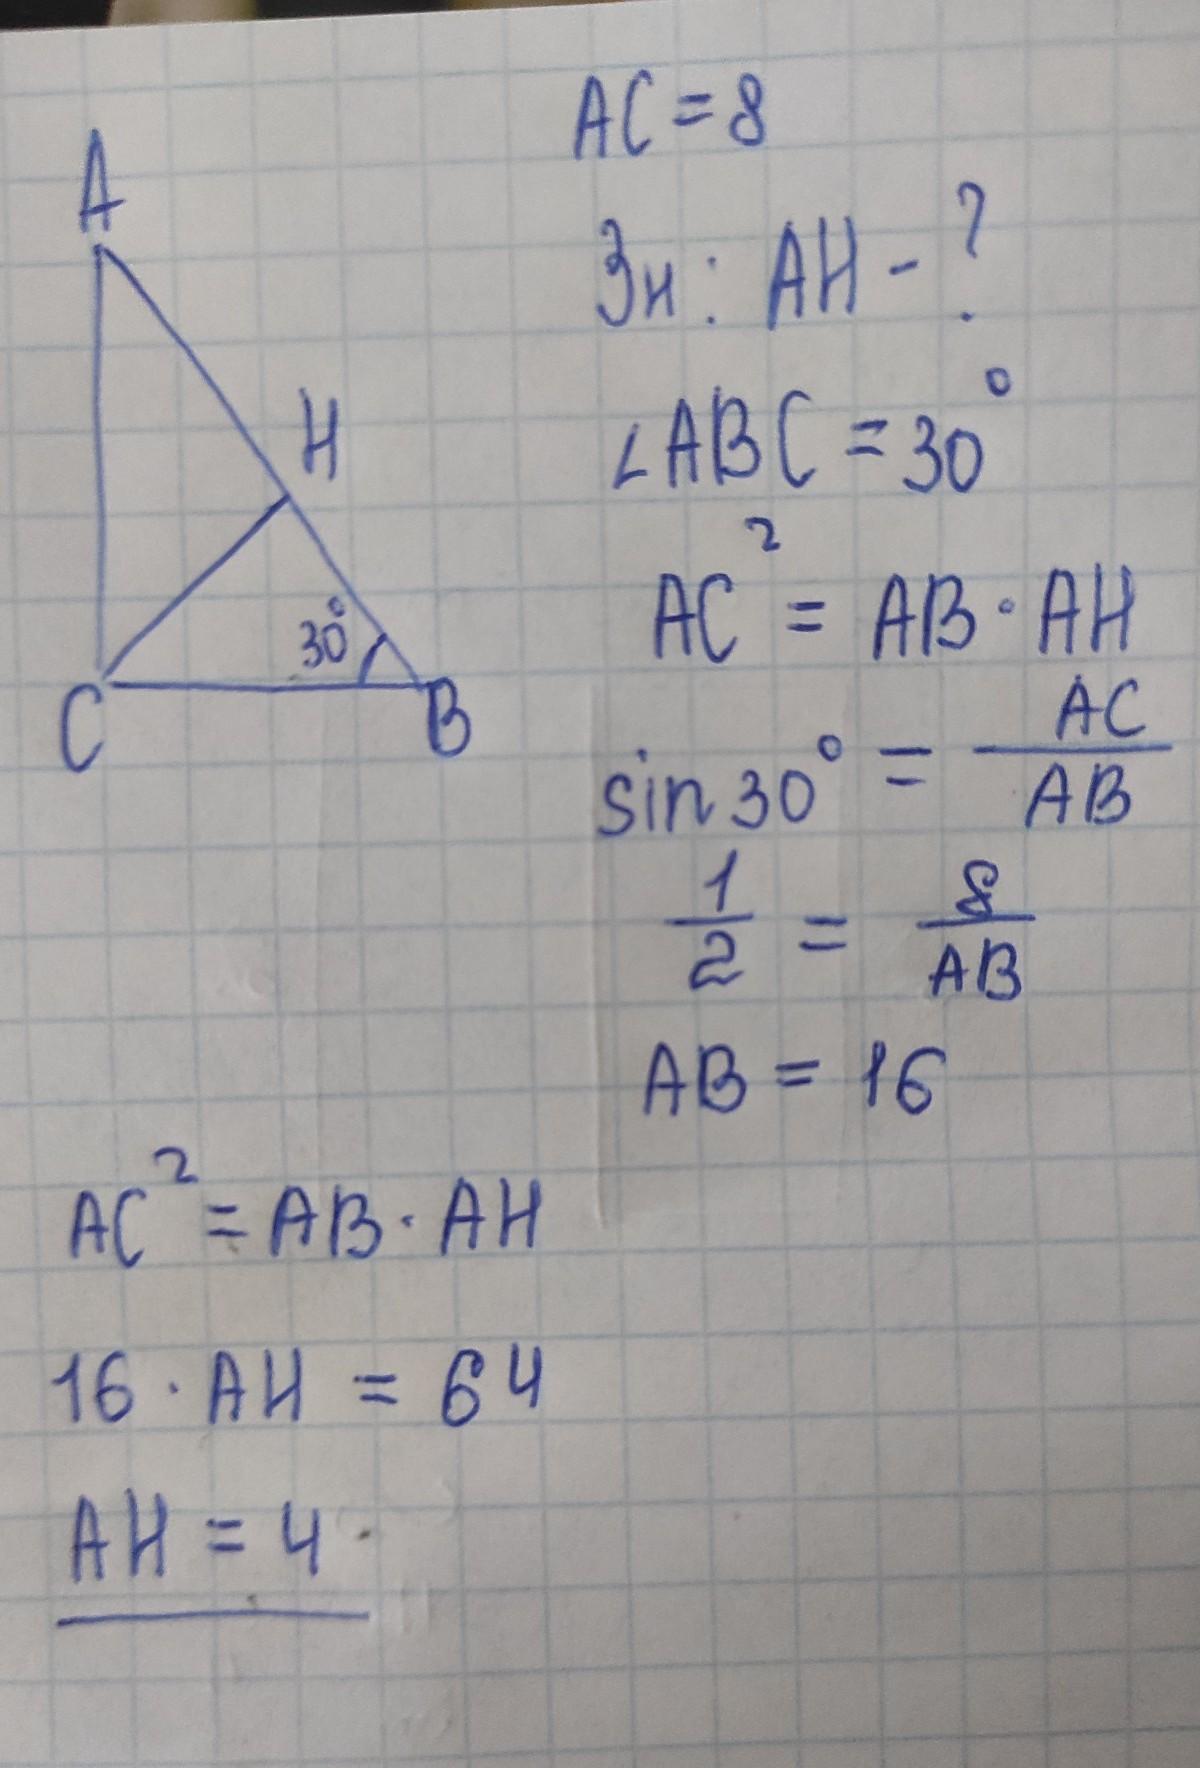 A
H
30°
C
B
AC = 8
Зн: AH - ?
∠ABC = 30°
AC² = AB · AH
sin 30° = AC/AB
1/2 = 8/AB
AB = 16
AC² = AB · AH
16 · AH = 64
AH = 4